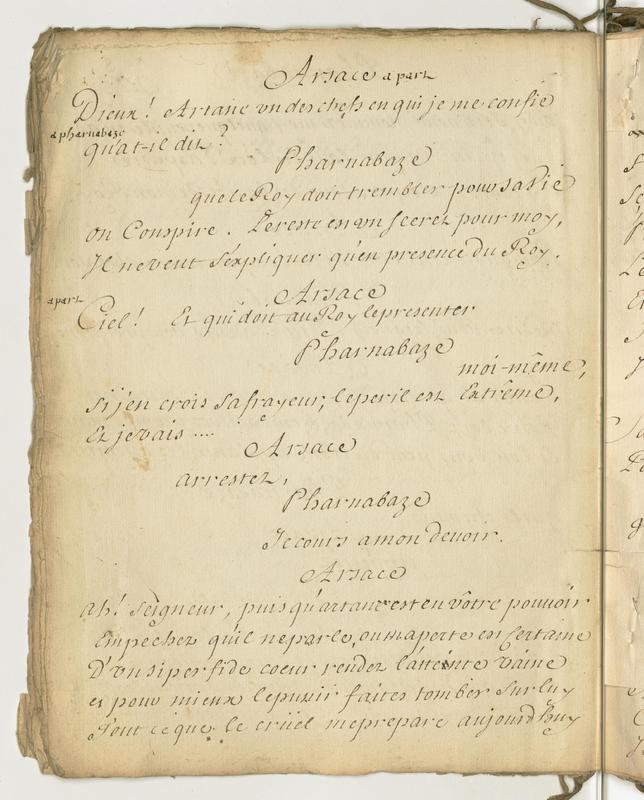 Arsace a part
Dieux! Artane un des chefs en qui je me confie
a pharnabaze
qu'a t-il dit?
Pharnabaze
que le Roy doit trembler pour sa vie
on Conspire. Le reste est un secret pour moy,
Il ne veut s'expliquer qu'en presence du Roy.
Arsace
a part
Ciel! Et qui doit au Roy le presenter
Pharnabaze
moi-même,
si j'en crois sa frayeur, le peril est Extrême,
Et je vais ....
Arsace
arrestez,
Pharnabaze
Je cours a mon devoir.
Arsace
ah! seigneur, puis qu'artane est en vôtre pouvoir
Empéchez qu'il ne parle, ou ma perte est Certaine
D'un si perfide coeur rendez l'atteinte vaine
et pour mieux le punir faites tomber sur luy
Tout ce que le cruel me prepare aujourd'huy